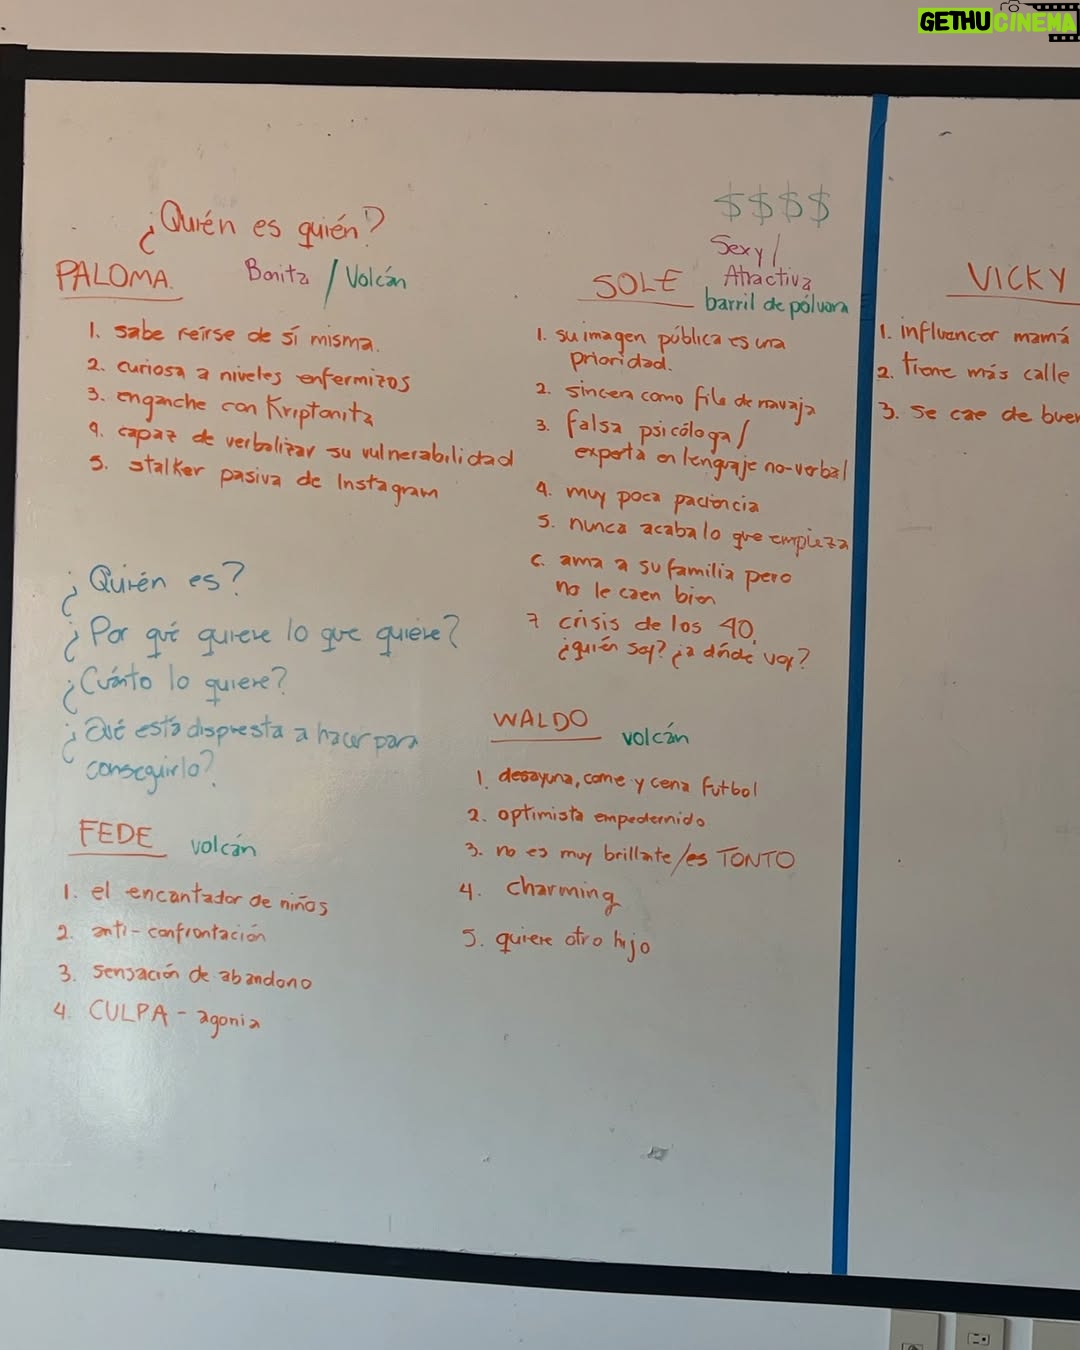 GETHUCINEMA
¿Quién es quién?
PALOMA. Bonita / Volcán
1. sabe reírse de sí misma.
2. curiosa a niveles enfermizos
3. enganche con Kriptonita
4. capaz de verbalizar su vulnerabilidad
5. stalker pasiva de Instagram
¿Quién es?
¿Por qué quiere lo que quiere?
¿Cuánto lo quiere?
¿Qué está dispuesta a hacer para
conseguirlo?
FEDE volcán
1. el encantador de niños
2. anti-confrontación
3. sensación de abandono
4. CULPA - agonia
$$$$
Sexy /
SOLE Atractiva
barril de pólvora
1. su imagen pública es una
prioridad.
2. sincera como filo de navaja
3. falsa psicóloga /
experta en lenguaje no-verbal
4. muy poca paciencia
5. nunca acaba lo que empieza
6. ama a su familia pero
no le caen bien
7 crisis de los 40.
¿quién soy? ¿a dónde voy?
WALDO volcán
1. desayuna, come y cena futbol
2. optimista empedernido
3. no es muy brillante/es TONTO
4. charming
5. quiere otro hijo
VICKY
1. influencer mamá
2. tiene más calle
3. se cae de buen